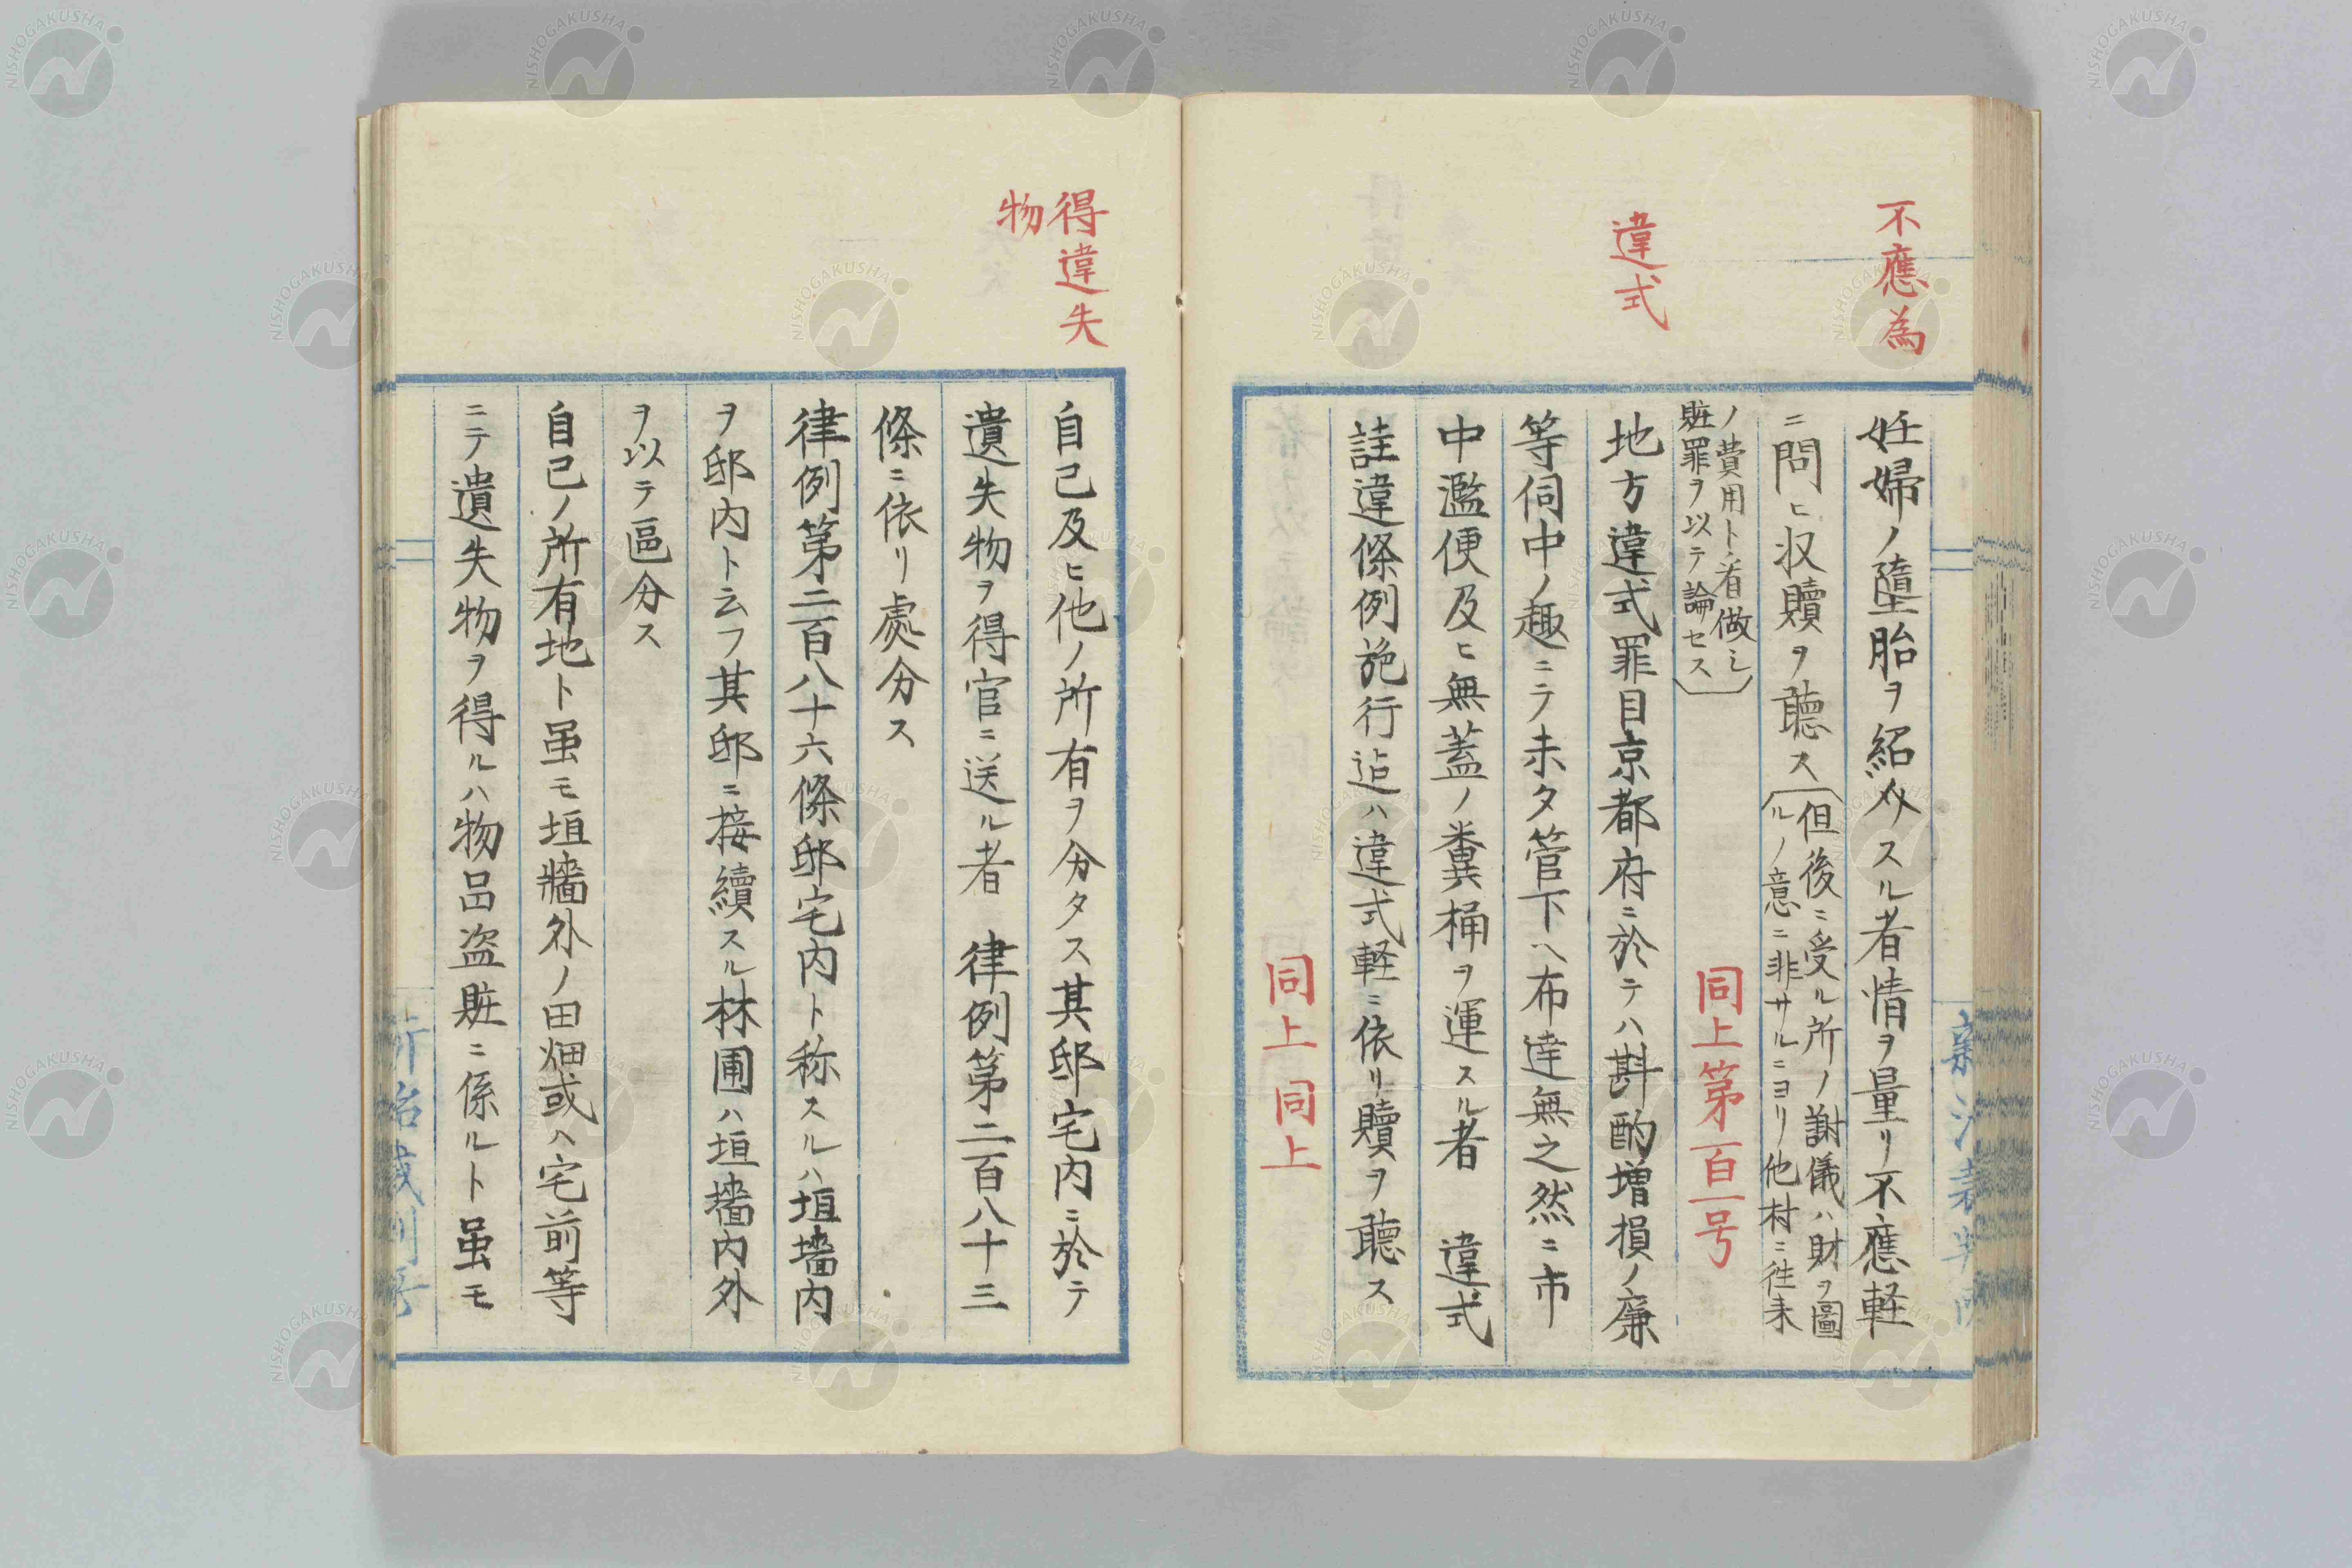 不應為
妊婦ノ墮胎ヲ紹介スル者情ヲ量リ不應軽
ニ問ヒ収贖ヲ聽ス(但後ニ受ル所ノ謝儀ハ財ヲ圖
ルノ意ニ非サルニヨリ他村ニ徃来
ノ費用ト看做シ
賍罪ヲ以テ論セス)
同上第百一号
違式
地方違式罪目京都府ニ於テハ斟酌増損ノ廉
等伺中ノ趣ニテ未タ管下ヘ布達無之然ニ市
中濫便及ヒ無蓋ノ糞桶ヲ運スル者 違式
註違條例施行迠ハ違式軽ニ依リ贖ヲ聽ス
同上同上
得違失
物
自己及ヒ他ノ所有ヲ分タス其邸宅内ニ於テ
遺失物ヲ得官ニ送ル者 律例第二百八十三
條ニ依リ處分ス
律例第二百八十六條邸宅内ト称スルハ垣墻内
ヲ邸内ト云フ其邸ニ接續スル林圃ハ垣墻内外
ヲ以テ區分ス
自己ノ所有地ト虽モ垣牆外ノ田畑或ハ宅前等
ニテ遺失物ヲ得ルハ物品盗賍ニ係ルト虽モ
NISHOGAKUSHA